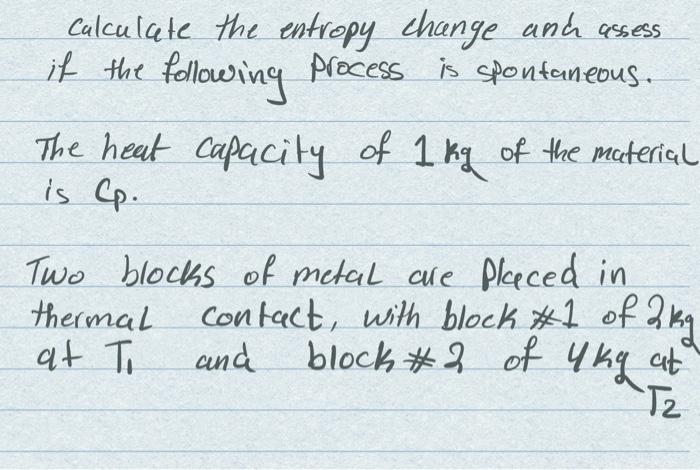 Calculate the entropy change and assess
if the following process is spontaneous.
The heat capacity of 1 kg of the material
is Cp.
Two blocks of metal are placed in
thermal contact, with block #1 of 2 kg
at T₁ and block #2 of 4 kg at
T₂